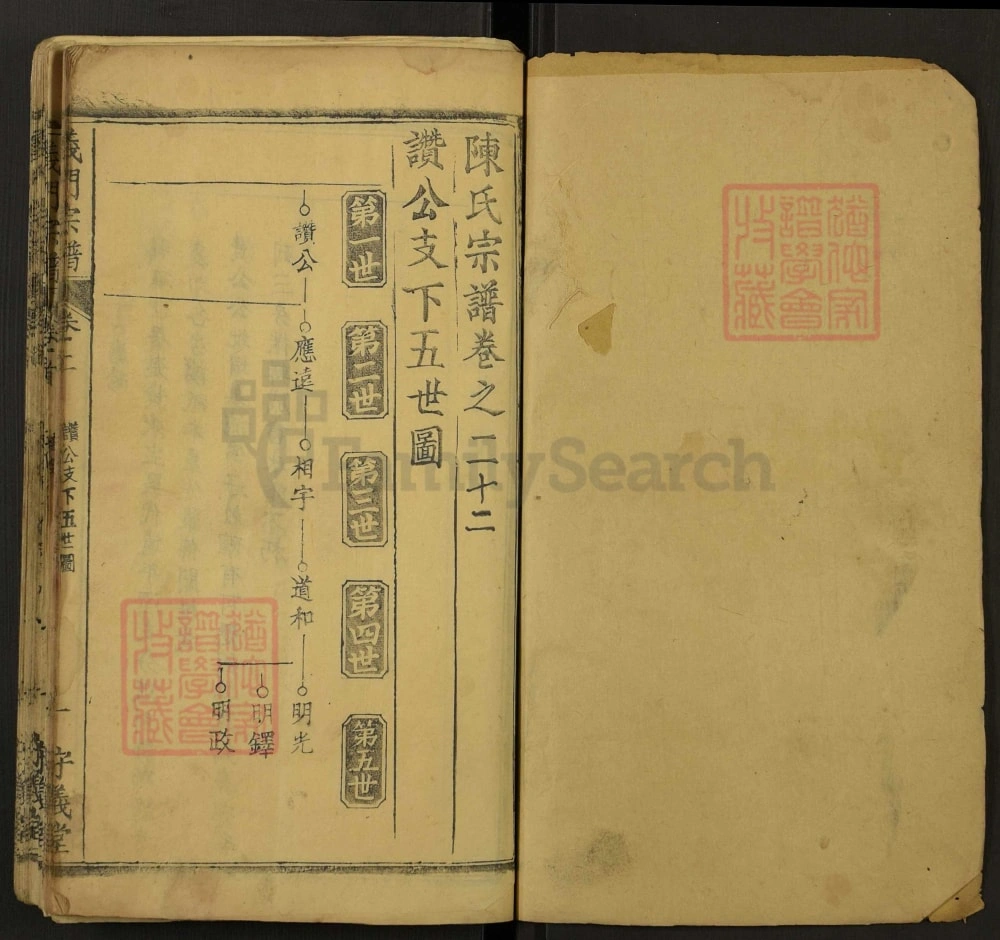 陳氏宗譜卷之二十二
讚公支下五世圖
第一世
第二世
第三世
第四世
第五世
讚公
應遠
相宇
道和
明光
明鐸
明政
義門宗譜
讚公支下五世圖
一
守義堂
FamilySearch
譜學會
收藏
譜學會
收藏